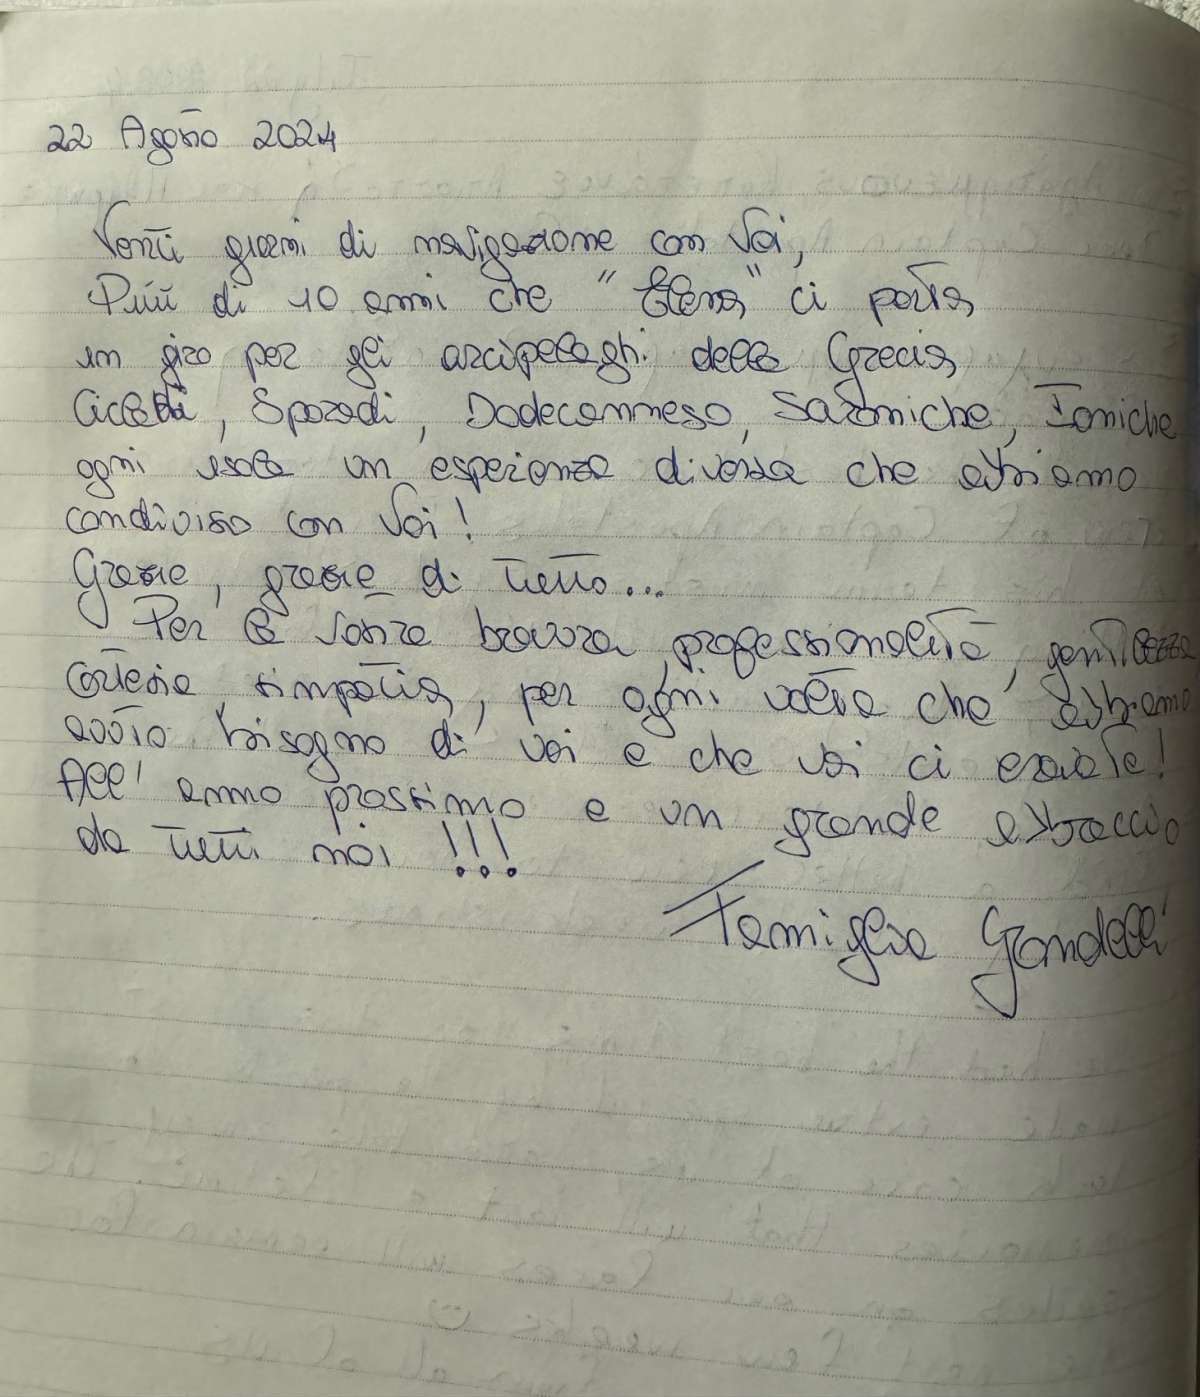 22 Agosto 2024
Venti giorni di navigazione con Voi,
Più di 10 anni che "Elena" ci porta
in giro per gli arcipelaghi della Grecia
Cicladi, Sporadi, Dodecanneso, Saroniche, Ioniche
ogni isola un esperienza diversa che abbiamo
condiviso con Voi!
Grazie, grazie di tutto...
Per la vostra bravura, professionalità, gentilezza
cortesia, simpatia, per ogni volta che abbiamo
avuto bisogno di voi e che voi ci eravate!
All' anno prossimo e un grande abbraccio
da tutti noi !!!
Famiglia Gandelli